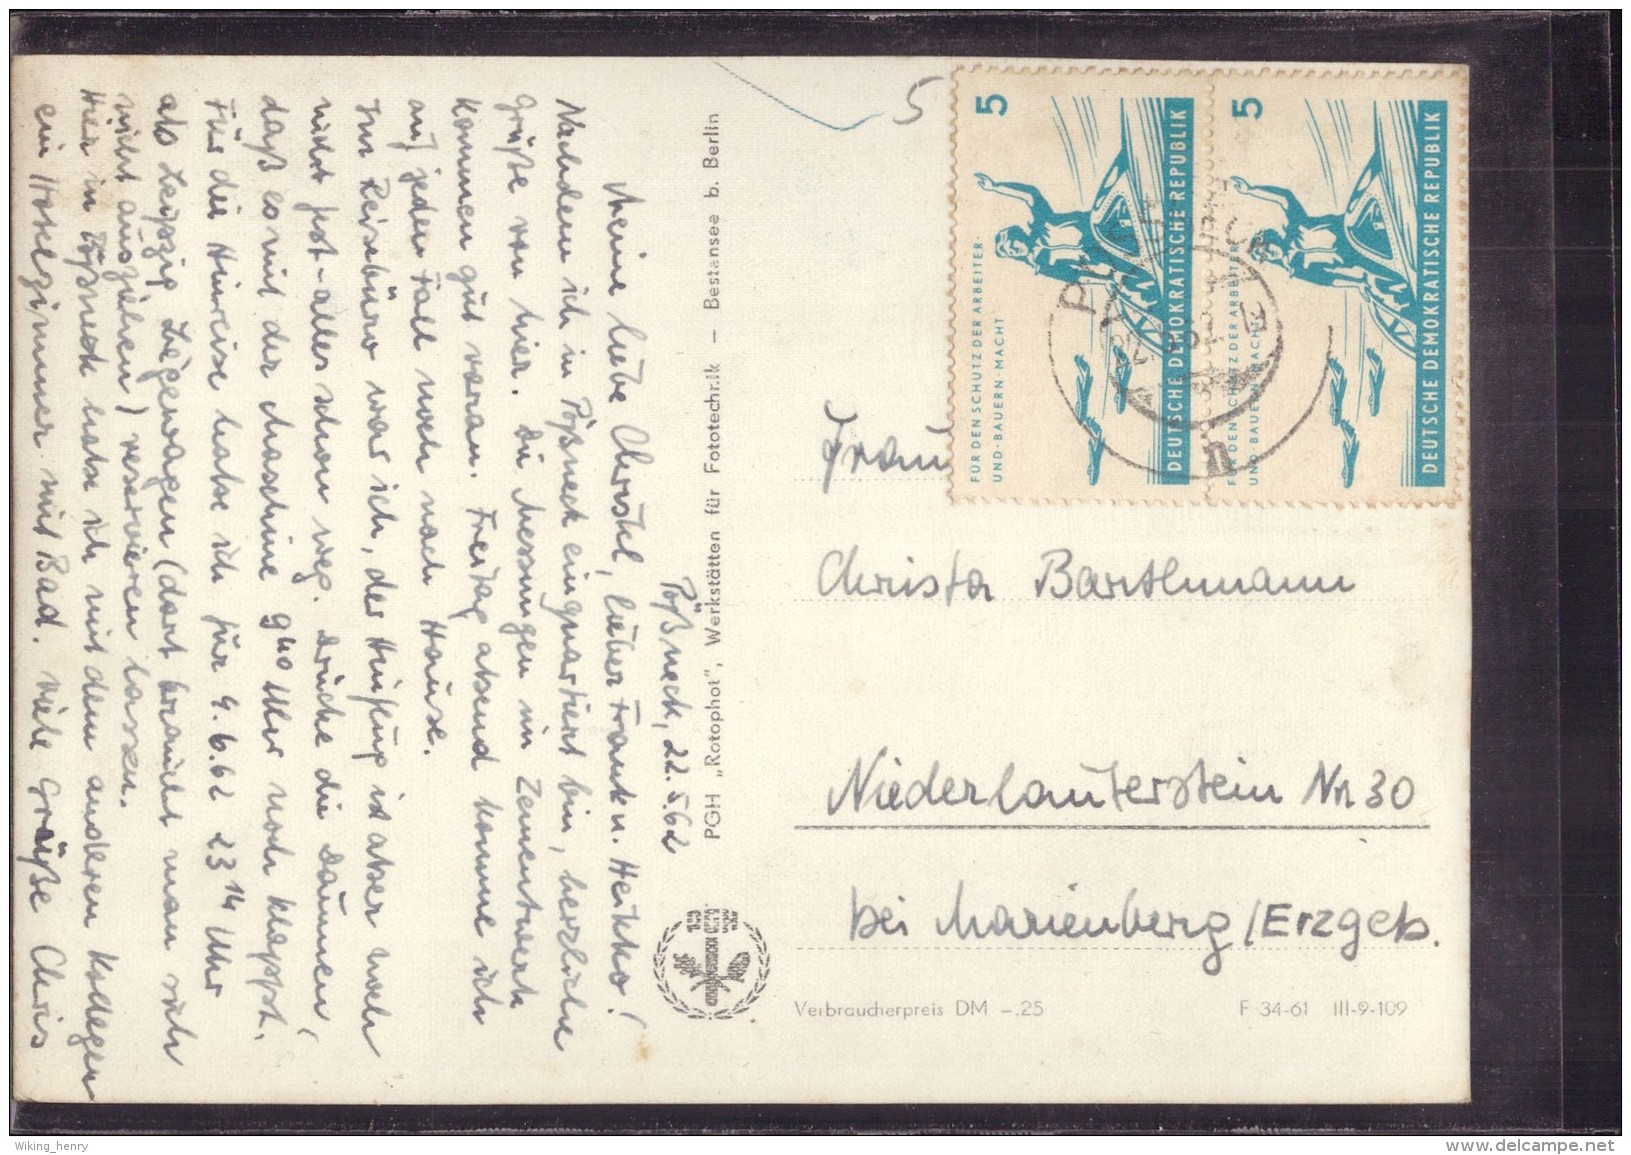 Pößneck, 22.5.62
Meine liebe Christel, lieber Frank u. Heikko!
Nachdem ich in Pößneck einquartiert bin, herzliche
Grüße von hier. Die Messungen im Zementwerk
kommen gut voran. Freitag abend komme ich
auf jeden Fall noch nach Hause.
Im Reisebüro war ich, der Hinflug ist aber noch
nicht fest - alles schon weg. Drücke die Daumen,
daß es mit der Maschine 9⁴⁰ Uhr noch klappt.
Für die Hinreise habe ich für 4.6.62 23¹⁴ Uhr
ab Leipzig Liegewagen (dort braucht man sich
nicht ausziehen) reservieren lassen.
Hier in Pößneck habe ich mit dem anderen Kollegen
ein Hotelzimmer mit Bad. Viele Grüße Chris
PGH „Rotophot“, Werkstätten für Fototechnik – Bestensee b. Berlin
5
5
FÜR DEN SCHUTZ DER ARBEITER-
UND-BAUERN-MACHT
DEUTSCHE DEMOKRATISCHE REPUBLIK
5
FÜR DEN SCHUTZ DER ARBEITER-
UND-BAUERN-MACHT
DEUTSCHE DEMOKRATISCHE REPUBLIK
n
Frau
Christa Barthmann
Niederlauterstein Nr 30
bei Marienberg/Erzgeb.
Verbraucherpreis DM –.25
F 34-61 III-9-109
Wiking_henry
www.delcampe.net